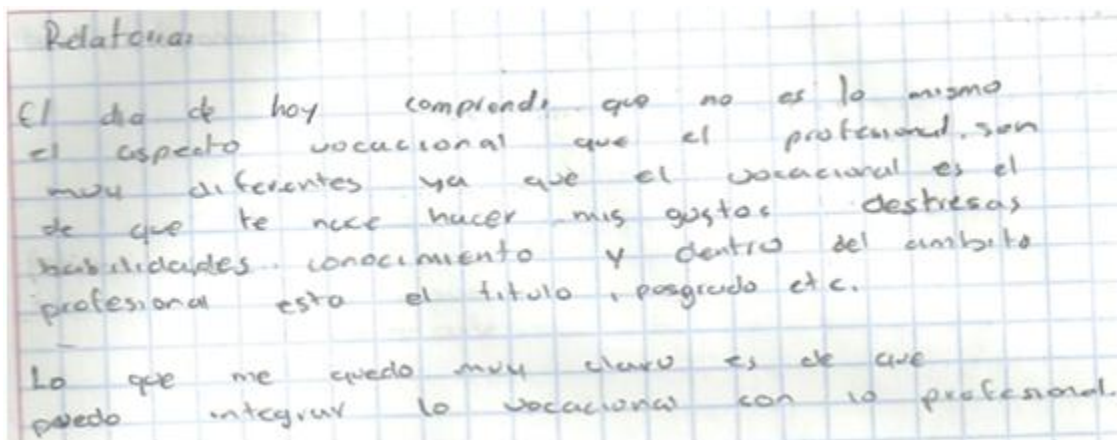 Relatoria:
El dia de hoy comprendi que no es lo mismo
el aspecto vocacional que el profesional. son
muy diferentes ya que el vocacional es el
de que te nace hacer mis gustos destresas
habilidades. conocimiento y dentro del ambito
profesional esta el titulo, posgrado etc.
Lo que me quedo muy claro es de que
puedo integrar lo vocacional con lo profesional.